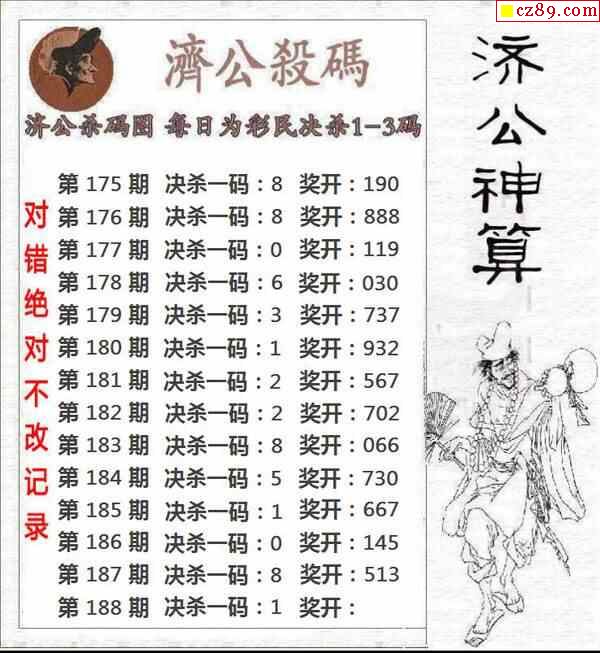 cz89.com
濟公殺碼
济公杀码图 每日为彩民决杀1-3码
第 175 期 决杀一码：8 奖开：190
第 176 期 决杀一码：8 奖开：888
第 177 期 决杀一码：0 奖开：119
第 178 期 决杀一码：6 奖开：030
第 179 期 决杀一码：3 奖开：737
第 180 期 决杀一码：1 奖开：932
第 181 期 决杀一码：2 奖开：567
第 182 期 决杀一码：2 奖开：702
第 183 期 决杀一码：8 奖开：066
第 184 期 决杀一码：5 奖开：730
第 185 期 决杀一码：1 奖开：667
第 186 期 决杀一码：0 奖开：145
第 187 期 决杀一码：8 奖开：513
第 188 期 决杀一码：1 奖开：
对错绝对不改记录
济公神算